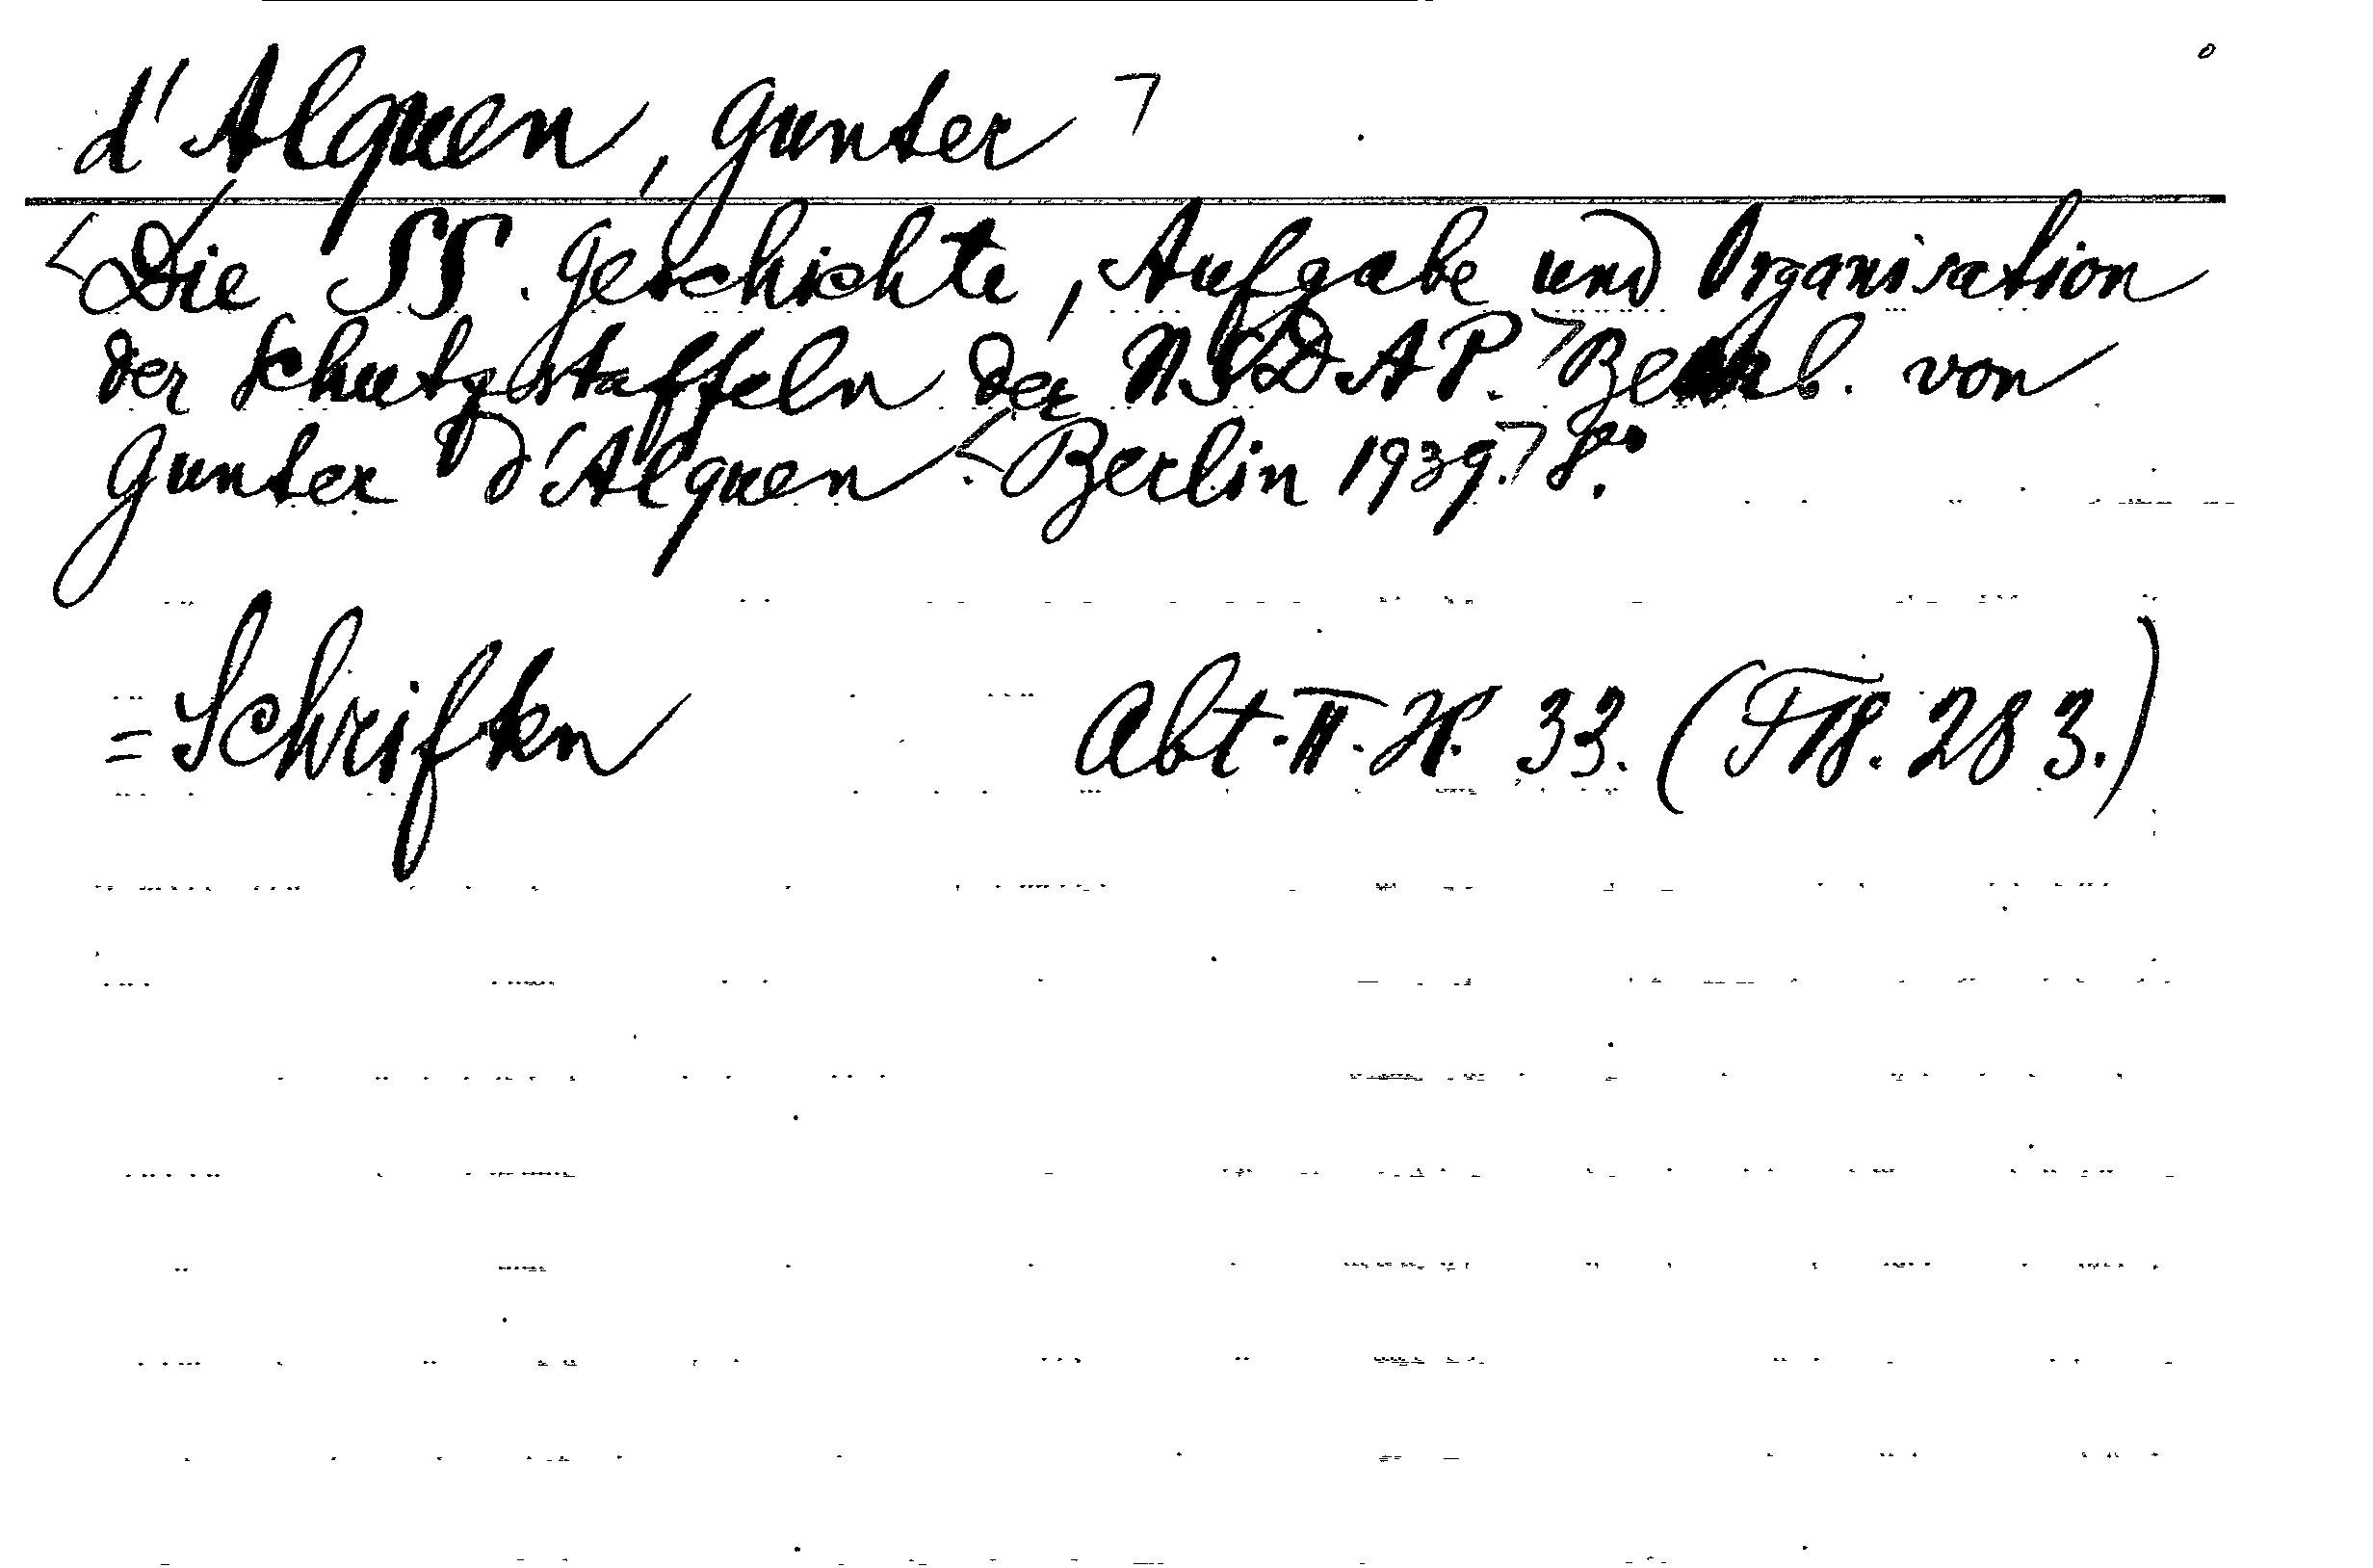 d'Alquen, Gunter
Die SS. Geschichte, Aufgabe und Organisation
der Schutzstaffeln der N.S.D.A.P. Bearb. von
Gunter d'Alquen. Berlin 1939. 8°.
= Schriften Abt. II. H. 33. ( 283.)